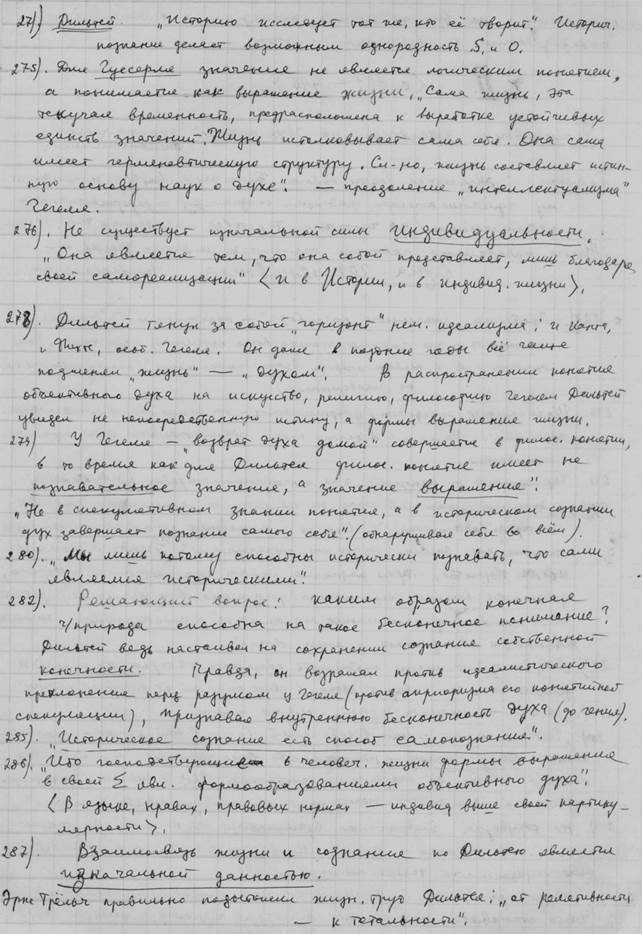 27). Дильтей „Историю исследует тот же, кто её творит". Историч.
познание делает возможным однородность S. и O.
275). Для Гуссерля значение не является логическим понятием,
а понимается как выражение жизни. „Сама жизнь, эта
текучая временность, предрасположена к выработке устойчивых
единств значений. Жизнь истолковывает сама себя. Она сама
имеет герменевтическую структуру. Сл-но, жизнь составляет истин-
ную основу наук о духе". — преодоление „интеллектуализма"
Гегеля.
276). Не существует изначальной силы индивидуальности.
„Она является тем, что она собой представляет, лишь благодаря
своей самореализации" <и в Истории, и в индивид. жизни>.
278). Дильтей тянул за собой „горизонт" нем. идеализма: и Канта,
и Фихте, особ. Гегеля. Он даже в поздние годы всё чаще
подменял „жизнь" — „духом". В распространении понятия
объективного духа на искусство, религию, философию Гегелем Дильтей
увидел не непосредственную истину, а формы выражения жизни.
279) У Гегеля — „возврат духа домой" совершается в филос. понятии,
в то время как для Дильтея филос. понятие имеет не
познавательное значение, а значение выражения".
„Не в спекулятивном знании понятия, а в историческом сознании
дух завершает познание самого себя". (обнаруживая себя во всём).
280). „Мы лишь потому способны исторически познавать, что сами
являемся историческими".
282). Решающий вопрос: каким образом конечная
ч/природа способна на такое бесконечное понимание?
Дильтей ведь настаивал на сохранении сознания собственной
конечности. Правда, он возражал против идеалистического
преклонения перед разумом у Гегеля (против априоризма его понятийной
спекуляции), признавая внутреннюю бесконечность духа (до гения).
285). „Историческое сознание есть способ самопознания".
286). „Ибо господствующие в человеч. жизни формы выражения
в своей Σ явл. формообразованиями объективного духа".
<В языке, нравах, правовых нормах — индивид выше своей партику-
лярности>.
287). Взаимосвязь жизни и сознания по Дильтею является
изначальной данностью.
Эрнст Трёльч правильно подытожил жизн. труд Дильтея: „от релятивности
— к тотальности".